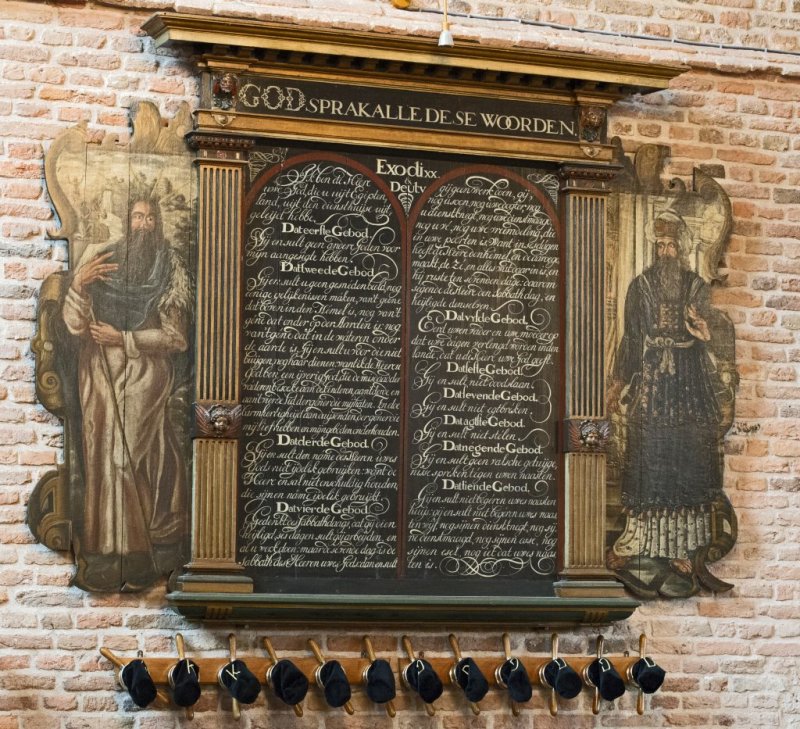 GOD SPRAK ALLE DE.SE WOORDEN.
Exodi xx.
&
Deut v
Ik ben de Heere
uwe God, die u uijt Egypten
land, uijt den diensthuise uijt
geleijt hebbe.
Dat eerste Gebod.
Gij en sult geen andere Goden voor
mijn aangesigte hebben.
Dat tweede Gebod.
Gij en sult u geen gesneden beeld, nog
eenige gelijkenissen maken, van't gene
boven in den Hemel is, nog van't
gene dat onder op der Aarden is, nog
van't gene dat in de wateren onder
de aarde is. Gij en sult u voor die niet
buijgen, nog haar dienen,
Dat derde Gebod.
Gij en sult den name des Heeren uwes
Gods niet ijdelik gebruijken: want de
Heere en sal niet onschuldig houden,
die sijnen name ijdelik gebruijkt.
Dat vierde Gebod.
Gedenkt des Sabbathdaags, dat gij dien
heijligt, ses dagen sult gij arbeijden, en
al u werk doen; maar de sevende dag is de
Sabbath des Heeren uwes Gods, dan en sult
gij geen werk doen, gij,
nog u soon, nog u dogter, nog
u dienstknegt, nog u dienstmaagd,
nog u vee, nog u vreemdeling, die
in uwe poorten is. Want in ses dagen
heeft de Heere den hemel en de aarde ge-
maakt, de Zee, en alles wat daar in is, en
hij ruste ten sevenden dage; daarom
segende de Heere den Sabbath dag, en
heijligde denselven.
Dat vijfde Gebod.
Eerd uwen vader en uwe moeder, op
dat uwe dagen verlengd worden in den
lande, dat u de Heere uw God geeft.
Dat seste Gebod.
Gij en sult niet doodslaan.
Dat sevende Gebod.
Gij en sult niet egtbreken.
Dat agtste Gebod.
Gij en sult niet stelen.
Dat negende Gebod.
Gij en sult geen valsche getuijge-
nisse spreken tegen uwen naasten.
Dat tiende Gebod.
Gij en sult niet begeren uwes naasten
huijs: gij en sult niet begeren uwes naas-
ten wijf, nog sijnen dienstknegt, nog sij-
ne dienstmaagd, nog sijnen osse, nog
sijnen esel, nog iet dat uwes naas-
ten is.